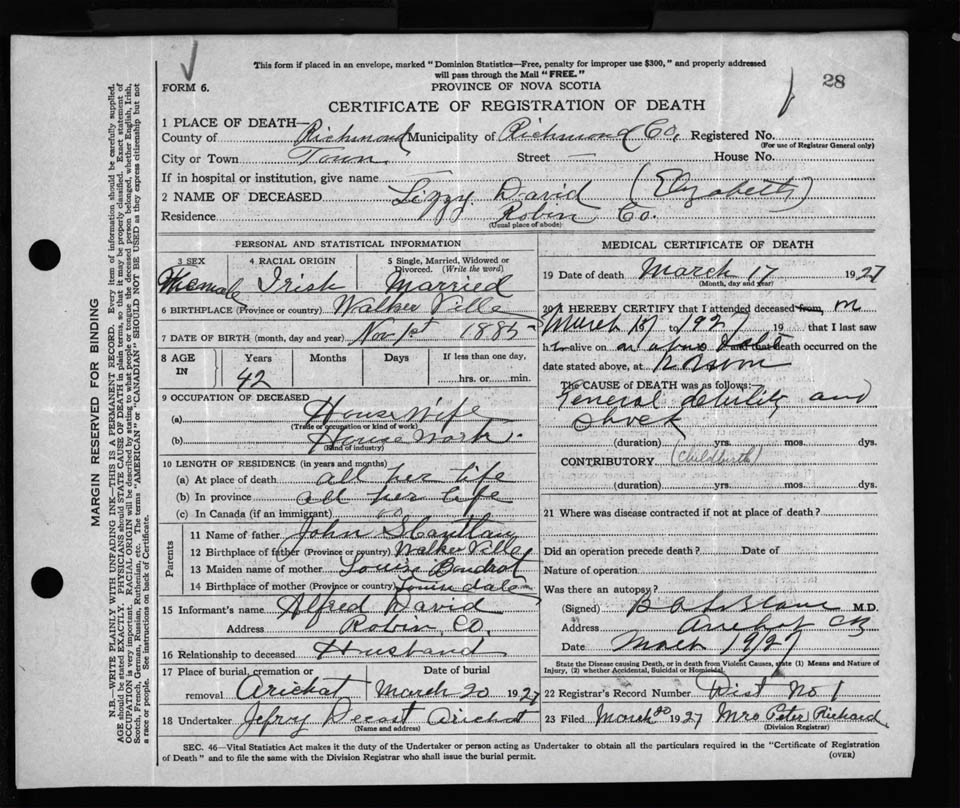 This form if placed in an envelope, marked "Dominion Statistics—Free, penalty for improper use $300," and properly addressed
will pass through the Mail "FREE."
FORM 6.
PROVINCE OF NOVA SCOTIA
28
CERTIFICATE OF REGISTRATION OF DEATH
1 PLACE OF DEATH—
County of Richmond Municipality of Richmond Co. Registered No.
(For use of Registrar General only)
City or Town Town Street — House No.
If in hospital or institution, give name
2 NAME OF DECEASED Lizzy David (Elizabeth)
Residence Robin Co.
(Usual place of abode)
PERSONAL AND STATISTICAL INFORMATION
3 SEX 4 RACIAL ORIGIN 5 Single, Married, Widowed or
Divorced. (Write the word)
Female Irish Married
6 BIRTHPLACE (Province or country) Walker Ville
7 DATE OF BIRTH (month, day and year) Nov 1st 1885
8 AGE IN Years Months Days If less than one day,
42 hrs. or min.
9 OCCUPATION OF DECEASED
(a) House Wife
(Trade or occupation or kind of work)
(b) House Work
(Kind of industry)
10 LENGTH OF RESIDENCE (in years and months)
(a) At place of death all her life
(b) In province all her life
(c) In Canada (if an immigrant)
Parents
11 Name of father John
12 Birthplace of father (Province or country) Walker Ville
13 Maiden name of mother Louise Boudrot
14 Birthplace of mother (Province or country) Louisdale
15 Informant's name Alfred David
Address Robin, Co.
16 Relationship to deceased Husband
17 Place of burial, cremation or Date of burial
removal Arichat March 20 1927
18 Undertaker Jefroy Decost Arichat
(Name and address)
MEDICAL CERTIFICATE OF DEATH
19 Date of death March 17 1927
(Month, day and year)
20 I HEREBY CERTIFY that I attended deceased from, m
March 17 to 1927 19 that I last saw
h alive on and that death occurred on the
date stated above, at noon
The CAUSE of DEATH was as follows:
General debility and
shock
(duration) yrs. mos. dys.
CONTRIBUTORY (childbirth)
(duration) yrs. mos. dys.
21 Where was disease contracted if not at place of death?
Did an operation precede death? Date of
Nature of operation
Was there an autopsy?
(Signed) M.D.
Address Arichat CB
Date March 19/27
State the Disease causing Death, or in death from Violent Causes, state (1) Means and Nature of
Injury, (2) whether Accidental, Suicidal or Homicidal.
22 Registrar's Record Number Dist No 1
23 Filed March 20 1927 Mrs Peter Richard
(Division Registrar)
SEC. 46—Vital Statistics Act makes it the duty of the Undertaker or person acting as Undertaker to obtain all the particulars required in the "Certificate of Registration
of Death" and to file the same with the Division Registrar who shall issue the burial permit.
(OVER)
MARGIN RESERVED FOR BINDING
N.B.—WRITE PLAINLY WITH UNFADING INK—THIS IS A PERMANENT RECORD. Every item of information should be carefully supplied.
AGE should be stated EXACTLY. PHYSICIANS should STATE CAUSE OF DEATH in plain terms, so that it may be properly classified. Exact statement of
OCCUPATION is very important. RACIAL ORIGIN will be described by stating to what people or tongue the deceased person belonged, whether English, Irish,
Scotch, French, German, Russian, Ruthenian, etc. The terms "AMERICAN" or "CANADIAN" SHOULD NOT BE USED as they express citizenship but not
a race or people. See instructions on back of Certificate.